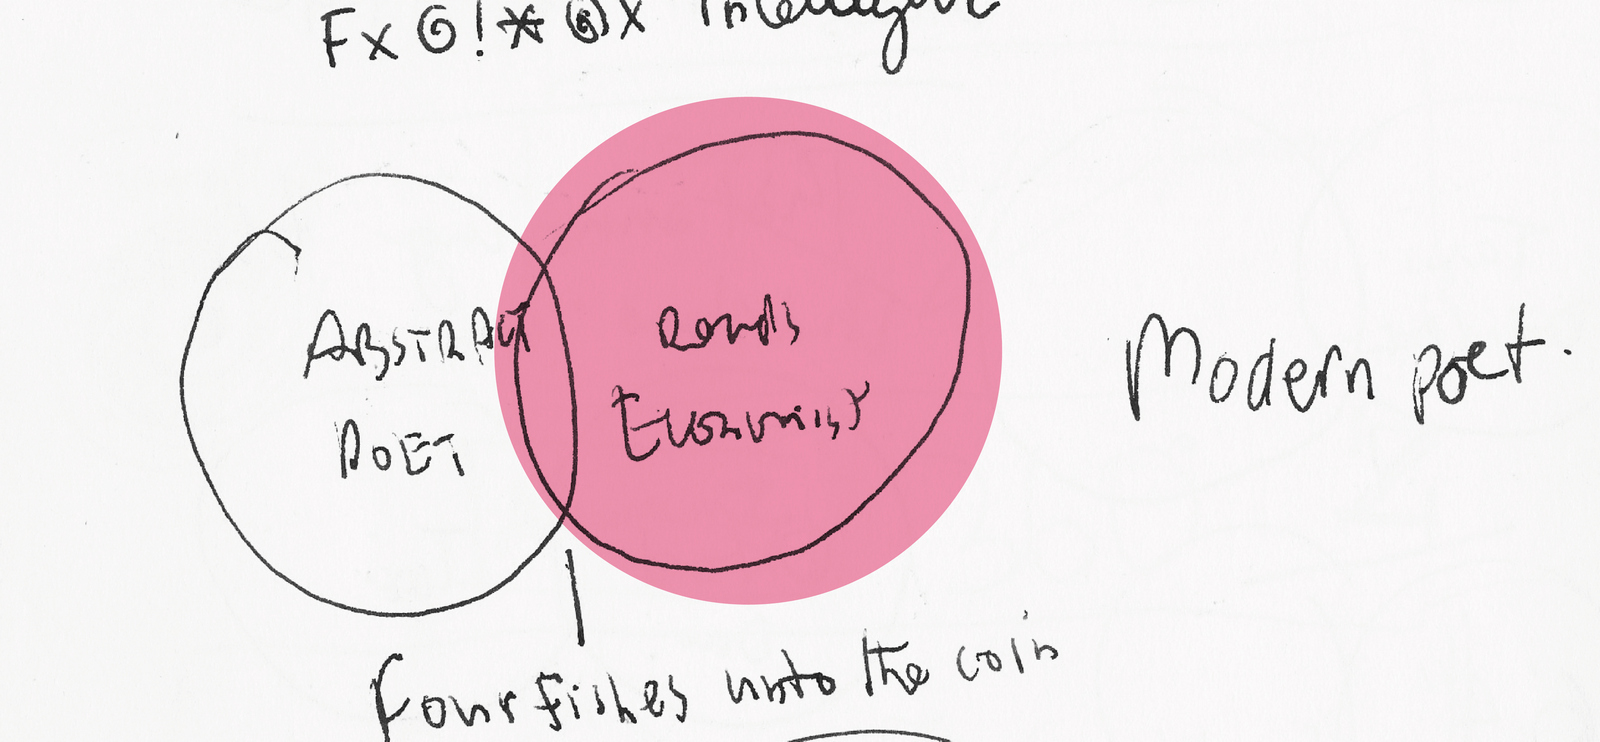 Fx@!*@x Intelligent
ABSTRACT
POET
Economist
Modern poet.
Four fishes unto the coin